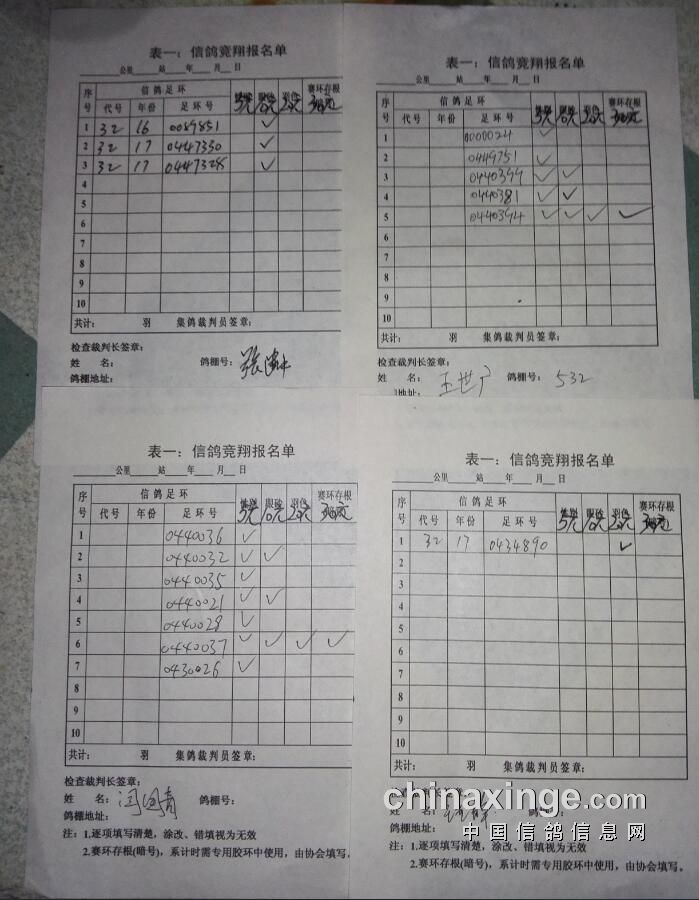 表一：信鸽竞翔报名单
公里 站 年 月 日
序号 信鸽足环 赛环存根
代号 年份 足环号
1 32 16 0089851 ✓
2 32 17 0447330 ✓
3 32 17 0447328 ✓
4
5
6
7
8
9
10
共计： 羽 集鸽裁判员签章：
检查裁判长签章：
姓 名： 鸽棚号：
鸽棚地址：
表一：信鸽竞翔报名单
公里 站 年 月 日
序号 信鸽足环 赛环存根
代号 年份 足环号
1 0000024 ✓
2 0449751 ✓
3 0440399 ✓ ✓
4 0440381 ✓ ✓
5 0440394 ✓ ✓ ✓ ✓
6
7
8
9
10
共计： 羽 集鸽裁判员签章：
检查裁判长签章：
姓 名： 王世广 鸽棚号： 532
地址：
表一：信鸽竞翔报名单
公里 站 年 月 日
序号 信鸽足环 赛环存根
代号 年份 足环号
1 0440036 ✓
2 0440032 ✓ ✓
3 0440035 ✓
4 0440021 ✓ ✓
5 0440028 ✓
6 0440037 ✓ ✓ ✓ ✓
7 0430026 ✓
8
9
10
共计： 羽 集鸽裁判员签章：
检查裁判长签章：
姓 名： 鸽棚号：
鸽棚地址：
注：1.逐项填写清楚，涂改、错填视为无效
2.赛环存根(暗号)，系计时需专用胶环中使用，由协会填写。
表一：信鸽竞翔报名单
公里 站 年 月 日
序号 信鸽足环 赛环存根
代号 年份 足环号
1 32 17 0434890 ✓
2
3
4
5
6
7
8
9
10
共计： 羽 集鸽裁判员签章：
签章：
姓 名：
鸽棚地址：
注：1.逐项填写清楚，涂改、错填视为无效
2.赛环存根(暗号)，系计时需专用胶环中使用，由协会填写。
chinaxinge.com
中国信鸽信息网